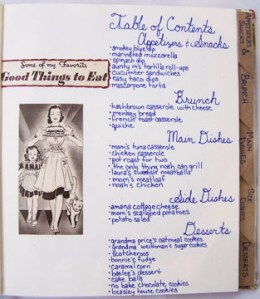 Some of my Favorite
Good Things to Eat
Table of Contents
Appetizers & Snacks
• smokey bleu dip
• marinated mozzarella
• spinach dip
• aunty m's tortilla roll-ups
• cucumber sandwiches
• easy taco dip
• mascarpone torta
Brunch
• hashbrown casserole with cheese
• monkey bread
• french toast casserole
• quiche
Main Dishes
• mom's tuna casserole
• chicken casserole
• pot roast for two
• the only thing noah can grill
• laura's meatballs
• mom's meatloaf
• noah's chicken
Side Dishes
• amana cottage cheese
• mom's scalloped potatoes
• potato salad
Desserts
• grandma price's oatmeal cookies
• grandma weithman's sugar cookies
• scotcheroos
• bonnie's fudge
• caramel corn
• bailee's dessert
• cake balls
• no bake chocolate cookies
• beasley house cookies
Appetizers
Snacks
Brunch
Main
Dishes
Side
Desserts